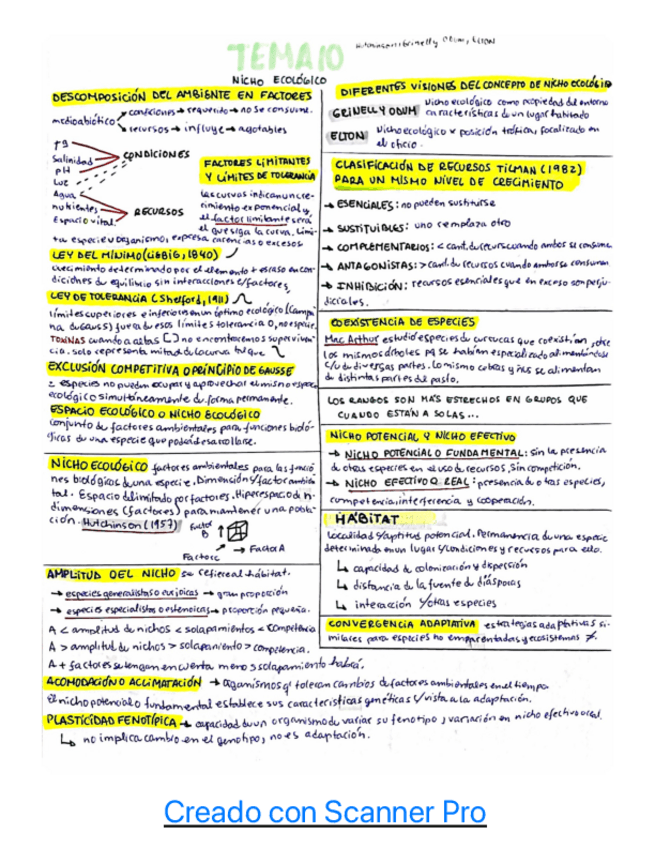 Hutchinson, Grinelly Odum, ELTON
TEMA 10
NICHO ECOLÓGICO
DESCOMPOSICIÓN DEL AMBIENTE EN FACTORES
medio abiótico
condiciones → requerido → no se consume.
recursos → influye → agotables
Tª
Salinidad
pH
Luz
Agua
nutrientes
Espacio vital.
CONDICIONES
RECURSOS
FACTORES LIMITANTES
Y LÍMITES DE TOLERANCIA
Las curvas indican un cre-
cimiento exponencial y
el factor limitante será
el que siga la curva. Limi-
ta especie u organismo, expresa carencias o excesos
LEY DEL MÍNIMO (LIEBIG, 1840)
crecimiento determinado por el elemento + escaso en con-
diciones de equilibrio sin interacciones c/factores
LEY DE TOLERANCIA (Shelford, 1911)
límites superiores e inferiores en un óptimo ecológico (Campa-
na de Gauss) fuera de esos límites tolerancia 0, no especie.
TOXINAS cuando a altas [ ] no encontramos superviven-
cia. solo representa mitad de la curva tal que
EXCLUSIÓN COMPETITIVA O PRINCIPIO DE GAUSSE
2 especies no pueden ocupar y aprovechar el mismo espacio
ecológico simultáneamente de forma permanente.
ESPACIO ECOLÓGICO O NICHO ECOLÓGICO
conjunto de factores ambientales para funciones bioló-
gicas de una especie que podrá desarrollarse.
NICHO ECOLÓGICO factores ambientales para las funcio-
nes biológicas de una especie. Dimensión y/factor ambien-
tal. Espacio delimitado por factores. Hiperespacio de n
dimensiones (factores) para mantener una pobla-
ción. Hutchinson (1957)
Factor
B
Factor A
Factor C
AMPLITUD DEL NICHO se refiere al hábitat.
→ especies generalistas o eurioicas → gran proporción
→ especies especialistas o estenoicas → proporción pequeña.
A < amplitud de nichos < solapamientos < competencia
A > amplitud de nichos > solapamiento > competencia.
A + factores se tengan en cuenta menos solapamiento habrá.
ACOMODACIÓN O ACLIMATACIÓN → organismos q' toleran cambios de factores ambientales en el tiempo
El nicho potencial o fundamental establece sus características genéticas c/vista a la adaptación.
PLASTICIDAD FENOTÍPICA → capacidad de un organismo de variar su fenotipo, variación en nicho efectivo o real.
↳ no implica cambio en el genotipo, no es adaptación.
DIFERENTES VISIONES DEL CONCEPTO DE NICHO ECOLÓGICO
GRINELL Y ODUM Nicho ecológico como propiedad del entorno
características de un lugar habitado
ELTON Nicho ecológico x posición trófica, focalizado en
el oficio.
CLASIFICACIÓN DE RECURSOS TILMAN (1982)
PARA UN MISMO NIVEL DE CRECIMIENTO
→ ESENCIALES: no pueden sustituirse
→ SUSTITUIBLES: uno remplaza otro
→ COMPLEMENTARIOS: < cant. de recurso cuando ambos se consumen
→ ANTAGONISTAS: > cant. de recursos cuando ambos se consumen
→ INHIBICIÓN: recursos esenciales que en exceso son perju-
diciales.
COEXISTENCIA DE ESPECIES
Mac Arthur estudió especies de currucas que coexistían sobre
los mismos árboles pq se habían especializado alimentándose
c/u de diversas partes. Lo mismo cebras y ñus se alimentan
de distintas partes del pasto.
LOS RANGOS SON MÁS ESTRECHOS EN GRUPOS QUE
CUANDO ESTÁN A SOLAS...
NICHO POTENCIAL Y NICHO EFECTIVO
→ NICHO POTENCIAL O FUNDAMENTAL: sin la presencia
de otras especies en el uso de recursos, sin competición.
→ NICHO EFECTIVO O REAL: presencia de otras especies,
competencia, interferencia y cooperación.
HÁBITAT
Localidad y/aptitud potencial. Permanencia de una especie
determinada en un lugar y/condiciones y recursos para ello.
↳ capacidad de colonización y dispersión
↳ distancia de la fuente de diásporas
↳ interacción c/otras especies
CONVERGENCIA ADAPTATIVA estrategias adaptativas si-
milares para especies no emparentadas y ecosistemas ≠.
Creado con Scanner Pro